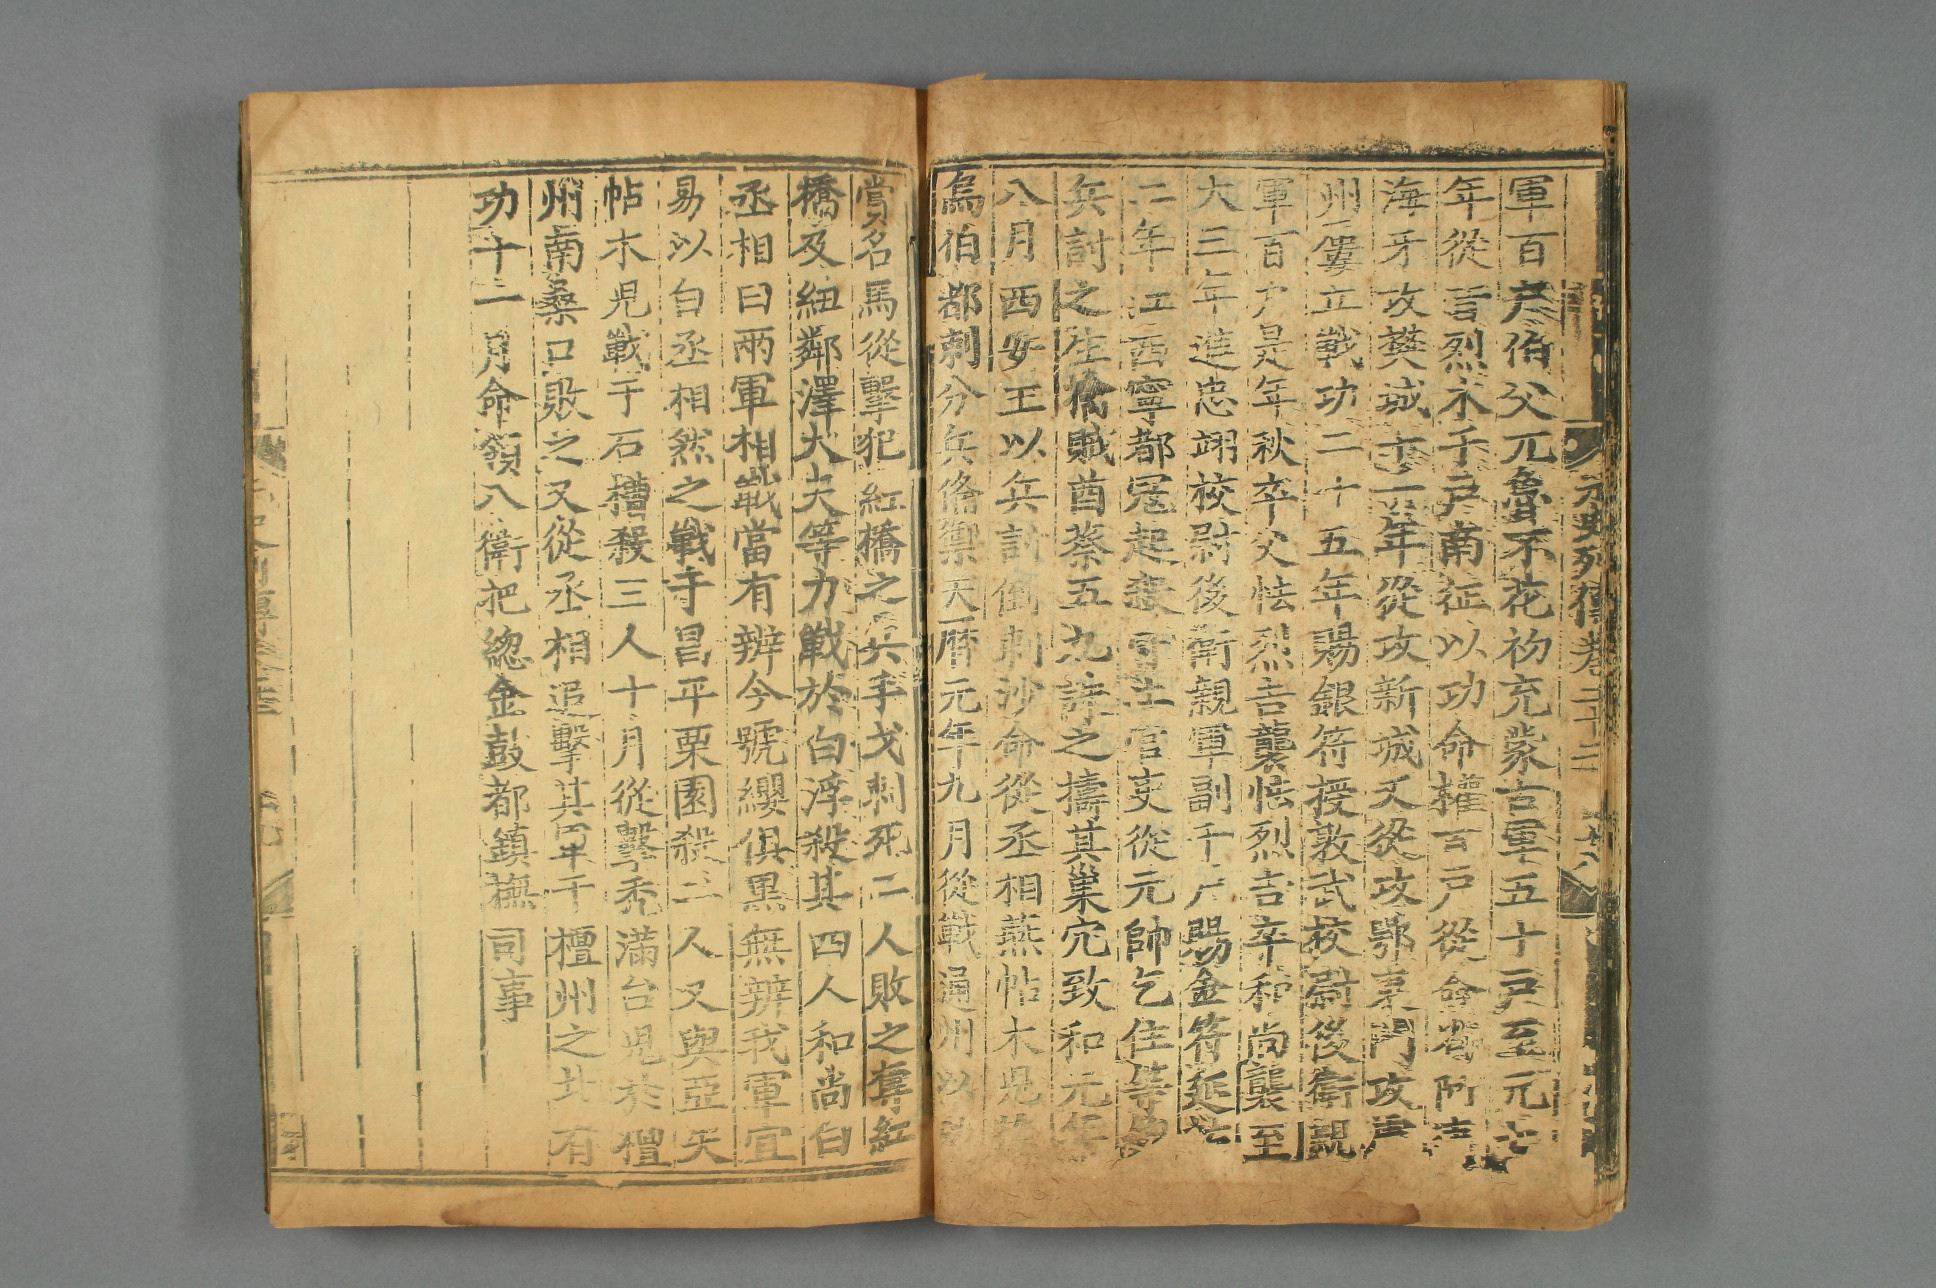 元史列傳卷二十二
軍百戶伯父兀魯不花初充蒙古軍五十戶至元七
年從言烈木千戶南征以功命權百戶從命省阿
海牙攻樊城十一年從攻新城又從攻鄂東門攻
州屢立戰功二十五年賜銀符授敦武校尉後衛親
軍百戶是年秋卒父怯烈吉襲怯烈吉卒和尚襲至
大三年進忠翊校尉後衛親軍副千戶賜金符延祐
二年江西寧都寇起從元帥乞住等
兵討之生擒賊酋蔡五九誅之擣其巢穴致和元年
八月西安王以兵討倒剌沙命從丞相燕帖木兒
烏伯都剌分兵備禦天曆元年九月從戰通州以功
賞名馬從擊犯紅橋之兵手戈刺死二人敗之奪紅
橋及紐鄰澤大夫等力戰於白浮殺其四人和尚白
丞相曰兩軍相戰當有辨今號纓俱黑無辨我軍宜
易以白丞相然之戰于昌平栗園殺二人又與亞失
帖木兒戰于石槽殺三人十月從擊禿滿台兒於檀
州南桑口敗之又從丞相追擊其軍于檀州之北有
功十一月命領八衛把總金鼓都鎮撫司事